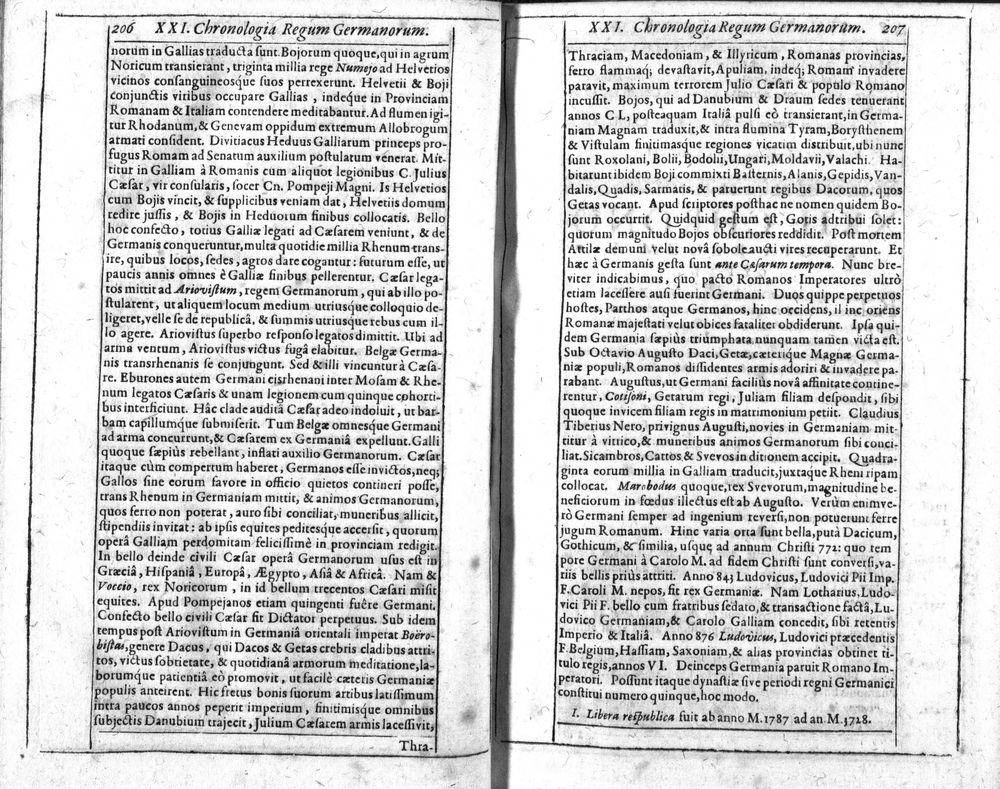 206 XXI. Chronologia Regum Germanorum.
norum in Gallias traducta sunt. Bojorum quoque, qui in agrum
Noricum transierant, triginta millia rege Numejo ad Helvetios
vicinos consanguineosque suos perrexerunt. Helvetii & Boji
conjunctis viribus occupare Gallias, indeque in Provinciam
Romanam & Italiam contendere meditabantur. Ad flumen igi
tur Rhodanum, & Genevam oppidum extremum Allobrogum
armati consident. Divitiacus Heduus Galliarum princeps pro-
fugus Romam ad Senatum auxilium postulatum venerat. Mit-
titur in Galliam à Romanis cum aliquot legionibus C. Julius
Cæsar, vir consularis, socer Cn. Pompeji Magni. Is Helvetios
cum Bojis vincit, & supplicibus veniam dat, Helvetiis domum
redire jussis, & Bojis in Heduorum finibus collocatis. Bello
hoc confecto, totius Galliæ legati ad Cæsarem veniunt, & de
Germanis conqueruntur, multa quotidie millia Rhenum trans-
ire, quibus locos, sedes, agros dare cogantur: futurum esse, ut
paucis annis omnes è Galliæ finibus pellerentur. Cæsar lega-
tos mittit ad Ariovistum, regem Germanorum, qui ab illo po-
stularent, ut aliquem locum medium utriusque colloquio de-
ligeret, velle se de republicâ, & summis utriusque rebus cum il-
lo agere. Ariovistus superbo responso legatos dimittit. Ubi ad
arma ventum, Ariovistus victus fugâ elabitur. Belgæ Germa-
nis transrhenanis se conjungunt. Sed & illi vincuntur à Cæsa-
re. Eburones autem Germani cisrhenani inter Mosam & Rhe-
num legatos Cæsaris & unam legionem cum quinque cohorti-
bus interficiunt. Hâc clade auditâ Cæsar adeo indoluit, ut bar-
bam capillumque submiserit. Tum Belgæ omnesque Germani
ad arma concurrunt, & Cæsarem ex Germaniâ expellunt. Galli
quoque sæpiùs rebellant, inflati auxilio Germanorum. Cæsar
itaque cùm compertum haberet, Germanos esse invictos, neq;
Gallos sine eorum favore in officio quietos contineri posse,
trans Rhenum in Germaniam mittit, & animos Germanorum,
quos ferro non poterat, auro sibi conciliat, muneribus allicit,
stipendiis invitat: ab ipsis equites peditesque accersit, quorum
operâ Galliam perdomitam felicissimè in provinciam redigit.
In bello deinde civili Cæsar operâ Germanorum usus est in
Græciâ, Hispaniâ, Europâ, Ægypto, Asiâ & Africâ. Nam &
Voccio, rex Noricorum, in id bellum trecentos Cæsari misit
equites. Apud Pompejanos etiam quingenti fuêre Germani.
Confecto bello civili Cæsar fit Dictator perpetuus. Sub idem
tempus post Ariovistum in Germaniâ orientali imperat Boëro-
bistas, genere Dacus, qui Dacos & Getas crebris cladibus attri-
tos, victus sobrietate, & quotidianâ armorum meditatione, la-
borumque patientiâ eò promovit, ut facilè cæteris Germaniæ
populis anteirent. Hic fretus bonis suorum artibus latissimum
intra paucos annos peperit imperium, finitimisque omnibus
subjectis Danubium trajecit, Julium Cæsarem armis lacessivit,
Thra-
XXI. Chronologia Regum Germanorum. 207
Thraciam, Macedoniam, & Illyricum, Romanas provincias,
ferro flammaq; devastavit, Apuliam, indeq; Romam invadere
paravit, maximum terrorem Julio Cæsari & populo Romano
incussit. Bojos, qui ad Danubium & Draum sedes tenuerant
annos CL, posteaquam Italiâ pulsi eò transierant, in Germa-
niam Magnam traduxit, & intra flumina Tyram, Borysthenem
& Vistulam finitimasque regiones vicatim distribuit, ubi nunc
sunt Roxolani, Bolii, Bodolii, Ungari, Moldavii, Valachi. Ha-
bitarunt ibidem Boji commixti Basternis, Alanis, Gepidis, Van-
dalis, Quadis, Sarmatis, & paruerunt regibus Dacorum, quos
Getas vocant. Apud scriptores posthac ne nomen quidem Bo-
jorum occurrit. Quidquid gestum est, Gotis adtribui solet:
quorum magnitudo Bojos obscuriores reddidit. Post mortem
Attilæ demum velut novâ sobole aucti vires recuperarunt. Et
hæc à Germanis gesta sunt ante Cæsarum tempora. Nunc bre-
viter indicabimus, quo pacto Romanos Imperatores ultrò
etiam lacessere ausi fuerint Germani. Duos quippe perpetuos
hostes, Parthos atque Germanos, hinc occidens, il inc oriens
Romanæ majestati velut obices fataliter obdiderunt. Ipsa qui-
dem Germania sæpius triumphata nunquam tamen victa est.
Sub Octavio Augusto Daci, Getæ, cæterique Magnæ Germa-
niæ populi, Romanos dissidentes armis adoriri & invadere pa-
rabant. Augustus, ut Germani faciliùs novâ affinitate contine-
rentur, Cotisoni, Getarum regi, Juliam filiam despondit, sibi
quoque invicem filiam regis in matrimonium petiit. Claudius
Tiberius Nero, privignus Augusti, novies in Germaniam mit-
titur à vitrico, & muneribus animos Germanorum sibi conci-
liat. Sicambros, Cattos & Svevos in ditionem accipit. Quadra-
ginta eorum millia in Galliam traducit, juxtaque Rheni ripam
collocat. Marobodus quoque, rex Svevorum, magnitudine be-
neficiorum in fœdus illectus est ab Augusto. Verùm enimve-
rò Germani semper ad ingenium reversi, non potuerunt ferre
jugum Romanum. Hinc varia orta sunt bella, putà Dacicum,
Gothicum, & similia, usque ad annum Christi 772: quo tem
pore Germani à Carolo M. ad fidem Christi sunt conversi, va-
riis bellis priùs attriti. Anno 843 Ludovicus, Ludovici Pii Imp.
F. Caroli M. nepos, fit rex Germaniæ. Nam Lotharius, Ludo-
vici Pii F. bello cum fratribus sedato, & transactione factâ, Lu-
dovico Germaniam, & Carolo Galliam concedit, sibi retentis
Imperio & Italiâ. Anno 876 Ludovicus, Ludovici præcedentis
F. Belgium, Hassiam, Saxoniam, & alias provincias obtinet ti-
tulo regis, annos VI. Deinceps Germania paruit Romano Im-
peratori. Possunt itaque dynastiæ sive periodi regni Germanici
constitui numero quinque, hoc modo.
I. Libera respublica fuit ab anno M. 1787 ad an. M. 3728.